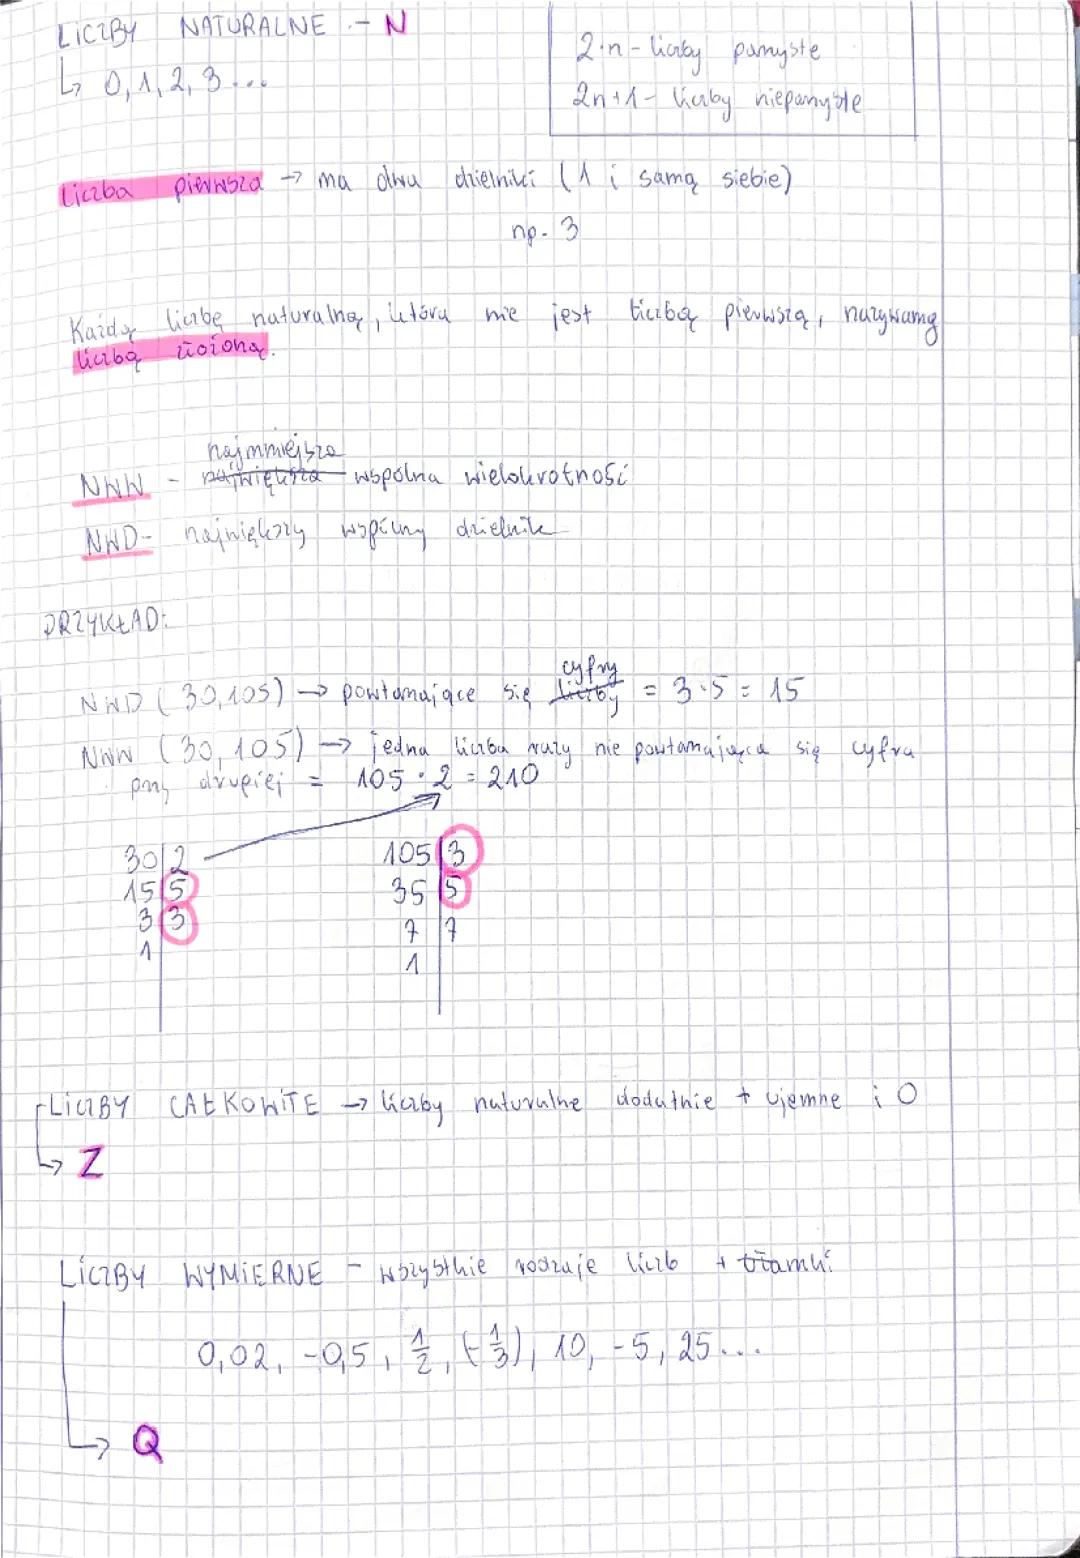 LICZBY NATURALNE - N
↳ 0, 1, 2, 3...
2·n - liczby parzyste
2n+1 - liczby nieparzyste
liczba pierwsza → ma dwa dzielniki (1 i samą siebie)
np. 3
Każdą liczbę naturalną, która nie jest liczbą pierwszą, nazywamy
liczbą złożoną.
najmniejsza
NWW - największa wspólna wielokrotność
NWD - największy wspólny dzielnik
PRZYKŁAD:
cyfry
NWD (30,105) → powtarzające się liczby = 3·5 = 15
NWW (30, 105) → jedna liczba razy nie powtarzająca się cyfra
przy drugiej = 105 · 2 = 210
30|2 105|3
15|5 35|5
3|3 7|7
1| 1|
LICZBY CAŁKOWITE → liczby naturalne dodatnie + ujemne i 0
↳ Z
LICZBY WYMIERNE - wszystkie rodzaje liczb + ułamki
0,02, -0,5, 1/2, (-1/3), 10, -5, 25...
↳ Q